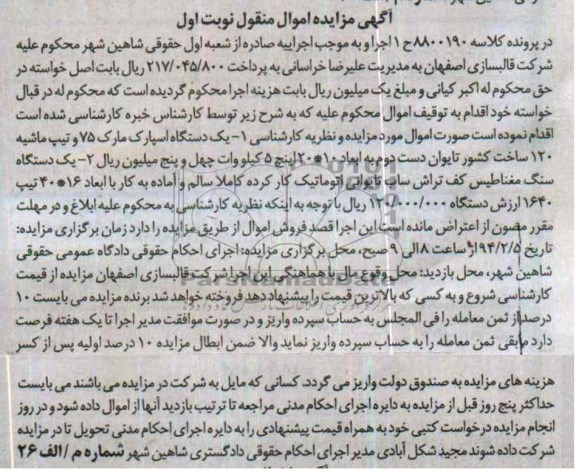 آگهی مزایده اموال منقول نوبت اول
در پرونده کلاسه ۸۸۰۰۱۹۰ح ۱ اجرا و به موجب اجراییه صادره از شعبه اول حقوقی شاهین شهر محکوم علیه
شرکت قالبسازی اصفهان به مدیریت علیرضا خراسانی به پرداخت ۲۱۷/۰۴۵/۸۰۰ ریال بابت اصل خواسته در
حق محکوم له اکبر کیانی و مبلغ یک میلیون ریال بابت هزینه اجرا محکوم گردیده است که محکوم له در قبال
خواسته خود اقدام به توقیف اموال محکوم علیه که به شرح زیر توسط کارشناس خبره کارشناسی شده است
اقدام نموده است صورت اموال مورد مزایده و نظریه کارشناسی ۱- یک دستگاه اسپارک مارک ۷۵ و تیپ ماشیه
۱۲۰ ساخت کشور تایوان دست دوم به ابعاد ۱۰*۲۰ اینچ ۵ کیلو وات چهل و پنج میلیون ریال ۲- یک دستگاه
سنگ مغناطیس کف تراش ساب تایوان اتوماتیک کار کرده کاملا سالم و آماده به کار با ابعاد ۱۶*۴۰ تیپ
۱۶۴۰ ارزش دستگاه ۱۲۰/۰۰۰/۰۰۰ ریال با توجه به اینکه نظریه کارشناسی به محکوم علیه ابلاغ و در مهلت
مقرر مصون از اعتراض مانده است این اجرا قصد فروش اموال از طریق مزایده را دارد زمان برگزاری مزایده:
تاریخ ۹۴/۲/۵ از ساعت ۸ الی ۹ صبح، محل برگزاری مزایده: اجرای احکام حقوقی دادگاه عمومی حقوقی
شاهین شهر، محل بازدید: محل وقوع مال با هماهنگی این اجرا شرکت قالبسازی اصفهان مزایده از قیمت
کارشناسی شروع و به کسی که بالاترین قیمت را پیشنهاد دهد فروخته خواهد شد برنده مزایده می بایست ۱۰
درصد از ثمن معامله را فی المجلس به حساب سپرده واریز و در صورت موافقت مدیر اجرا تا یک هفته فرصت
دارد مابقی ثمن معامله را به حساب سپرده واریز نماید والا ضمن ابطال مزایده ۱۰ درصد اولیه پس از کسر
هزینه های مزایده به صندوق دولت واریز می گردد. کسانی که مایل به شرکت در مزایده می باشند می بایست
حداکثر پنج روز قبل از مزایده به دایره اجرای احکام مدنی مراجعه تا ترتیب بازدید آنها از اموال داده شود و در روز
انجام مزایده درخواست کتبی خود به همراه قیمت پیشنهادی را به دایره اجرای احکام مدنی تحویل تا در مزایده
شرکت داده شوند مجید شکل آبادی مدیر اجرای احکام حقوقی دادگستری شاهین شهر شماره م / الف ۲۶